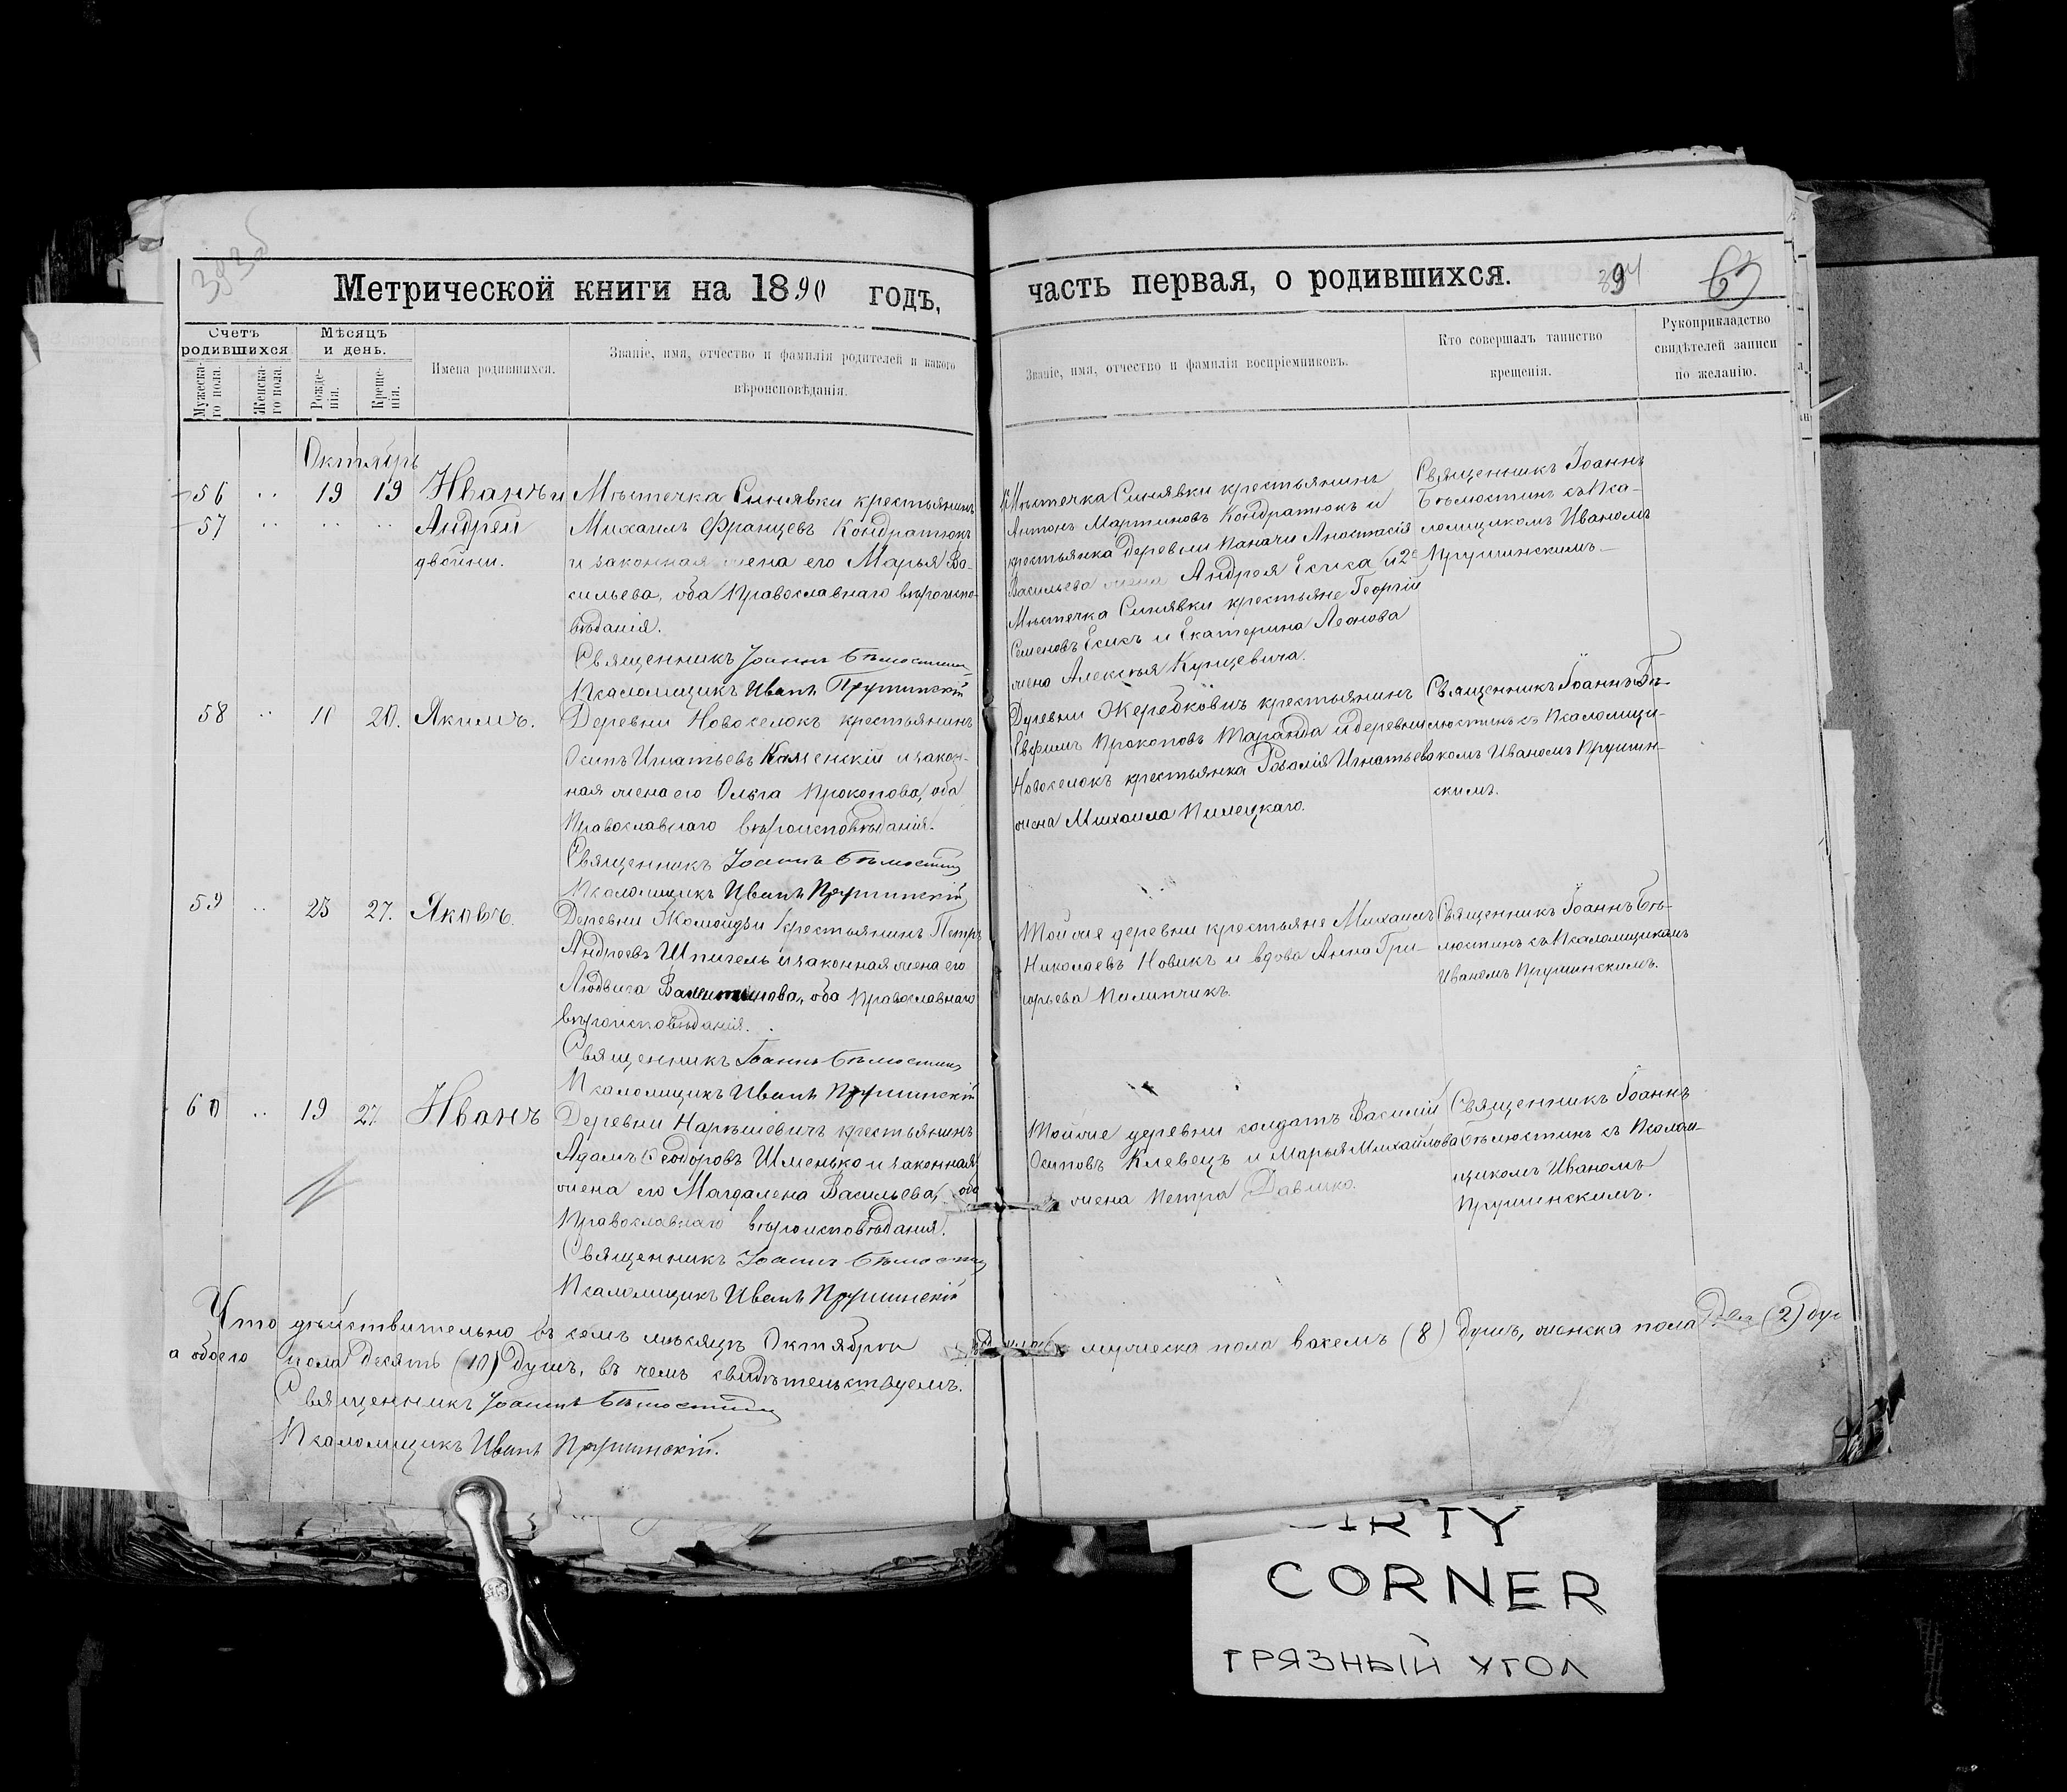 Метрической книги на 1890 годъ,
Счетъ родившихся
Мѣсяцъ и день.
Мужеска-го пола.
Женска-го пола.
Рожде-нія.
Креще-нія.
Имена родившихся.
Званіе, имя, отчество и фамилія родителей и какого
вѣроисповѣданія.
Октябрь
56 19 19 Иванъ и Мѣстечка Синявки крестьянинъ
57 Андрей Михаилъ Францевъ Кондратюкъ
двойни. и законная жена его Марья Ва-
сильева, оба Православнаго вѣроиспо-
вѣданія.
Священникъ Іоаннъ Бѣлюстинъ
Псаломщикъ Иванъ Прушинскій
58 20. Якимъ. Деревни Новоселокъ крестьянинъ
Осипъ Игнатьевъ Каменскій и закон-
ная жена его Ольга Прокопова, оба
Православнаго вѣроисповѣданія.
Священникъ Іоаннъ Бѣлюстинъ
Псаломщикъ Иванъ Прушинскій
59 25 27. Яковъ. Деревни Жамойдзи крестьянинъ Петръ
Андреевъ Шпигель и законная жена его
Людвига Валентинова, оба Православнаго
вѣроисповѣданія.
Священникъ Іоаннъ Бѣлюстинъ
Псаломщикъ Иванъ Прушинскій
60 19 27 Иванъ Деревни Нарѣшевичъ крестьянинъ
Адамъ Ѳеодоровъ Шменько и законная
жена его Магдалена Васильева, оба
Православнаго вѣроисповѣданія.
Священникъ Іоаннъ Бѣлюстинъ
Псаломщикъ Иванъ Прушинскій
Что дѣйствительно въ семъ мѣсяцѣ Октябрѣ
а обоего пола десять (10) душъ, въ чемъ свидѣтельствуемъ.
Священникъ Іоаннъ Бѣлюстинъ
Псаломщикъ Иванъ Прушинскій.
часть первая, о родившихся. 394 63
Званіе, имя, отчество и фамилія воспріемниковъ.
Кто совершалъ таинство
крещенія.
Рукоприкладство
свидѣтелей записи
по желанію.
Мѣстечка Синявки крестьянинъ
Антонъ Мартиновъ Кондратюкъ и
крестьянка деревни Паначи Анастасія
Васильева жена Андрея Есиса и 2е
Мѣстечка Синявки крестьяне Георгій
Семеновъ Есисъ и Екатерина Леонова
жена Алексѣя Купцевича.
Священникъ Іоаннъ
Бѣлюстинъ съ Пса-
ломщикомъ Иваномъ
Прушинскимъ.
Деревни Жеребковичъ крестьянинъ
Евфимъ Прокоповъ Таранда и деревни
Новоселокъ крестьянка Розалія Игнатьева
жена Михаила Пилецкаго.
Священникъ Іоаннъ Бѣ-
люстинъ съ Псаломщи-
комъ Иваномъ Прушин-
скимъ.
Той же деревни крестьяне Михаилъ
Николаевъ Новикъ и вдова Анна Гри-
горьева Пилипчикъ.
Священникъ Іоаннъ Бѣ-
люстинъ съ Псаломщикомъ
Иваномъ Прушинскимъ.
Той же деревни солдатъ Василій
Осиповъ Клевецъ и Марья Михайлова
жена Петра Давшко.
Священникъ Іоаннъ
Бѣлюстинъ съ Псалом-
щикомъ Иваномъ
Прушинскимъ.
мужеска пола восемь (8) душъ, женска пола два (2) душ
CORNER
ГРЯЗНЫЙ УГОЛ